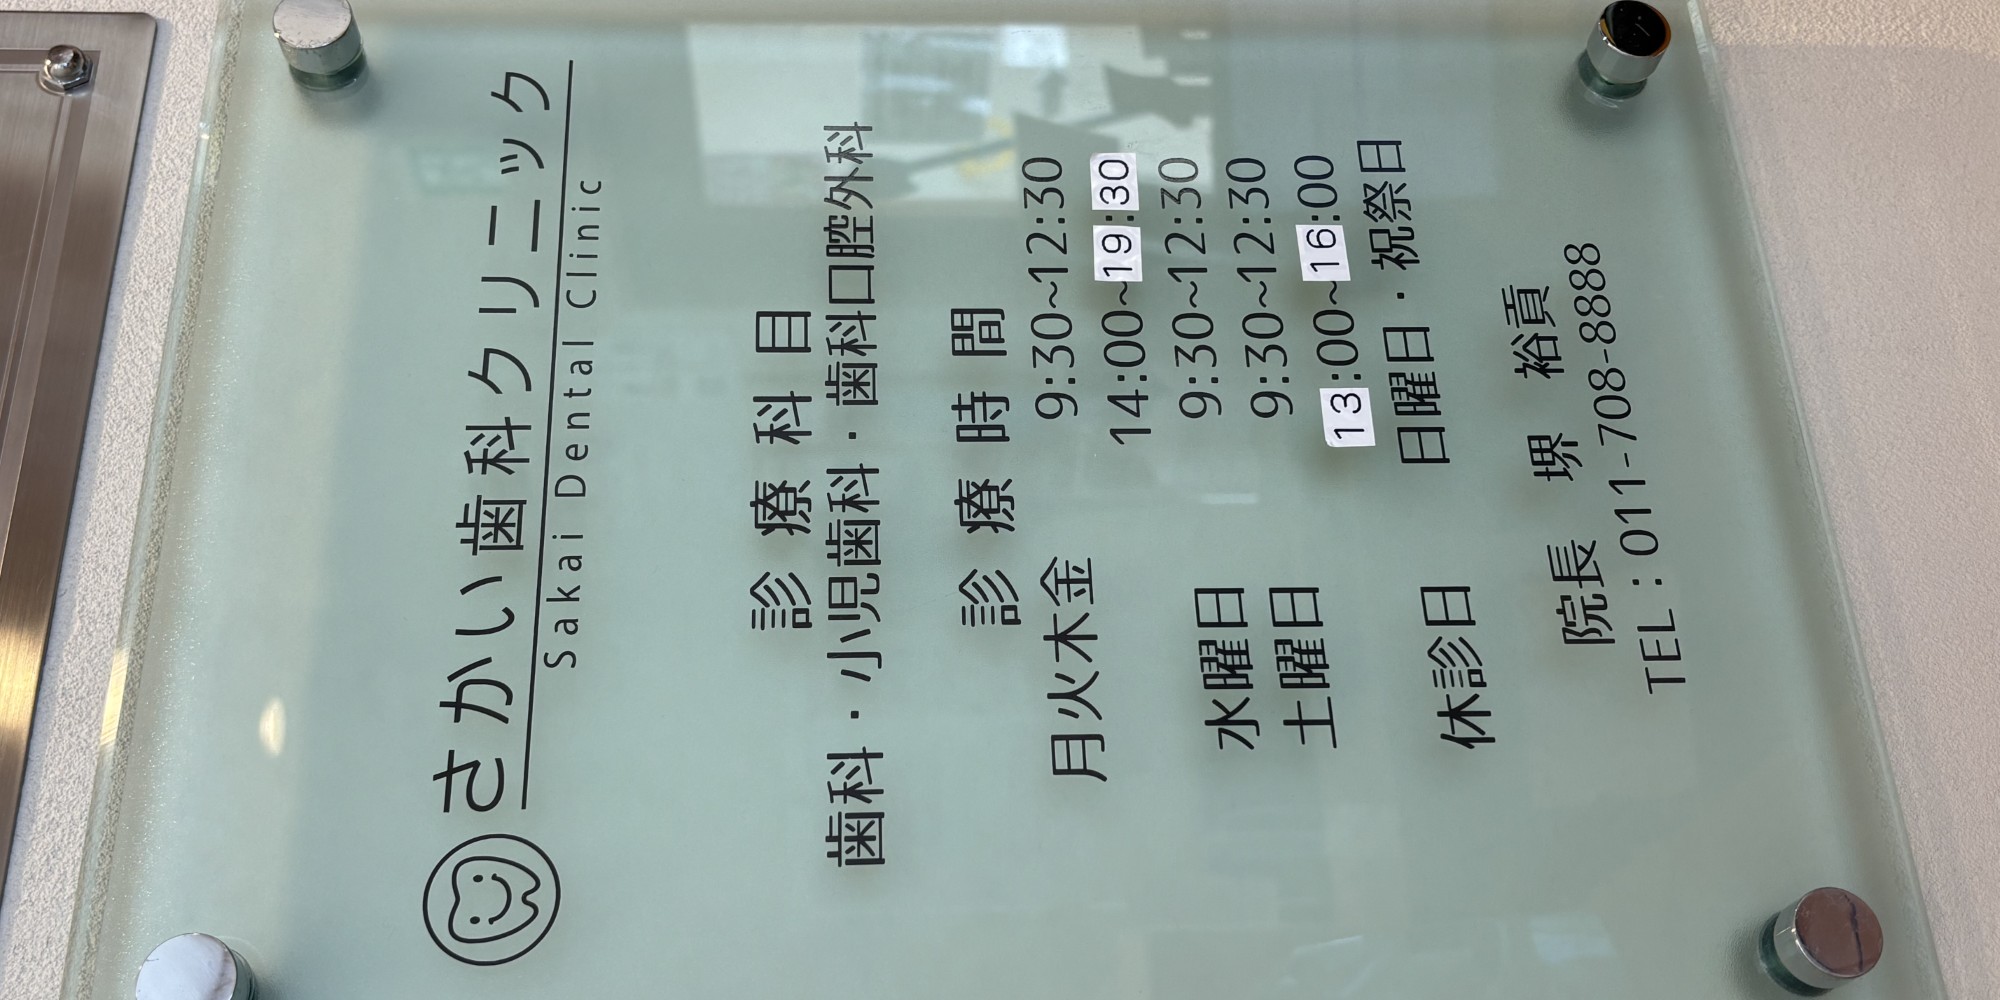 さかい歯科クリニック
Sakai Dental Clinic
診療科目
歯科・小児歯科・歯科口腔外科
診療時間
月火木金 9:30~12:30
14:00~19:30
水曜日 9:30~12:30
土曜日 9:30~12:30
13:00~16:00
休診日 日曜日・祝祭日
院長 堺 裕貢
TEL:011-708-8888